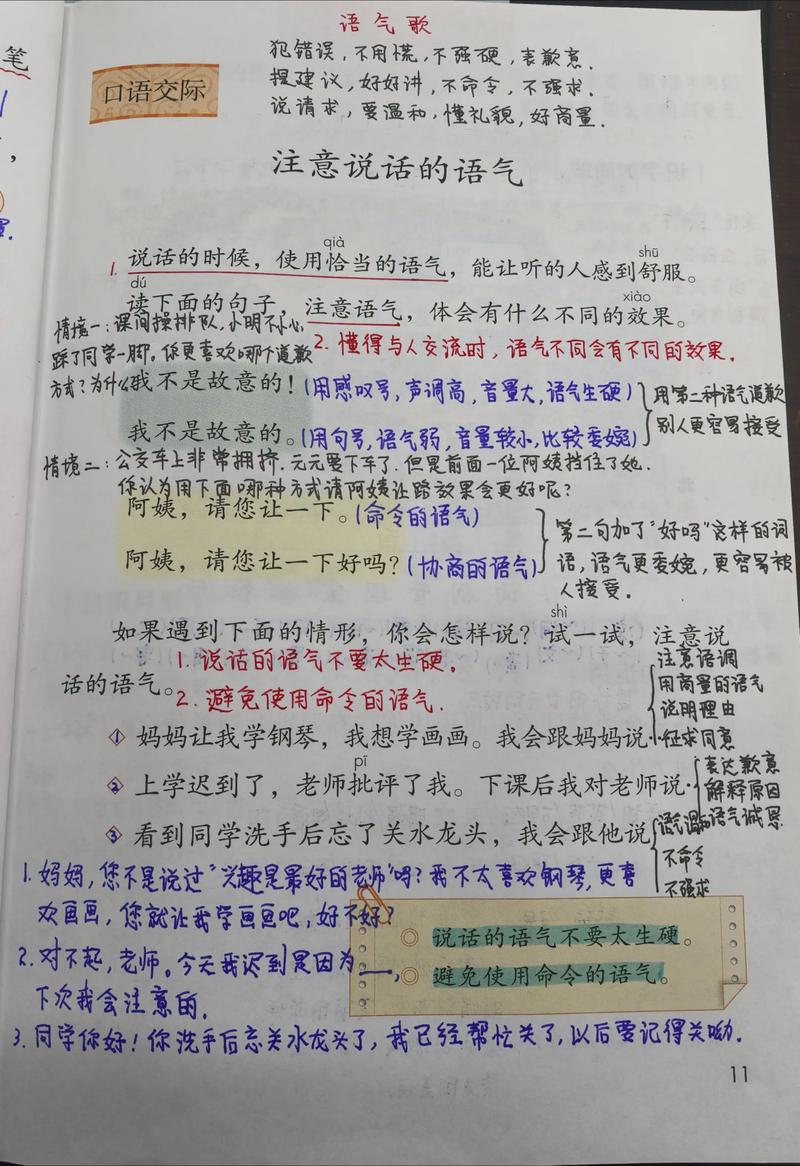 笔
语气歌
犯错误，不用慌，不强硬，表歉意.
提建议，好好讲，不命令，不强求.
说请求，要温和，懂礼貌，好商量.
口语交际
注意说话的语气
qià shū
1. 说话的时候，使用恰当的语气，能让听的人感到舒服。
dú xiào
读下面的句子，注意语气，体会有什么不同的效果。
2. 懂得与人交流时，语气不同会有不同的效果.
情境一：课间操排队，小明不小心
踩了同学一脚。你更喜欢哪个道歉
方式？为什么
我不是故意的！(用感叹号，声调高，音量大，语气生硬)
我不是故意的。(用句号，语气弱，音量较小，比较委婉)
用第二种语气道歉
别人更容易接受
情境二：公交车上非常拥挤.元元要下车了.但是前面一位阿姨挡住了她.
你认为用下面哪种方式请阿姨让路效果会更好呢？
阿姨，请您让一下。(命令的语气)
阿姨，请您让一下好吗？(协商的语气)
第二句加了“好吗”这样的词
语，语气更委婉，更容易被
人接受。
shì
如果遇到下面的情形，你会怎样说？试一试，注意说
话的语气。
1. 说话的语气不要太生硬。
2. 避免使用命令的语气.
注意语调
用商量的语气
说明理由
征求同意
1 妈妈让我学钢琴，我想学画画。我会跟妈妈说
pī
2 上学迟到了，老师批评了我。下课后我对老师说
表达歉意
解释原因
语气诚恳
3 看到同学洗手后忘了关水龙头，我会跟他说
语气温和
不命令
不强求
1. 妈妈，您不是说过“兴趣是最好的老师”吗？我不太喜欢钢琴，更喜
欢画画，您就让我学画画吧，好不好？
2. 对不起，老师。今天我迟到是因为___，
下次我会注意的.
3. 同学你好！你洗手后忘关水龙头了，我已经帮忙关了，以后要记得关呦.
说话的语气不要太生硬。
避免使用命令的语气。
11